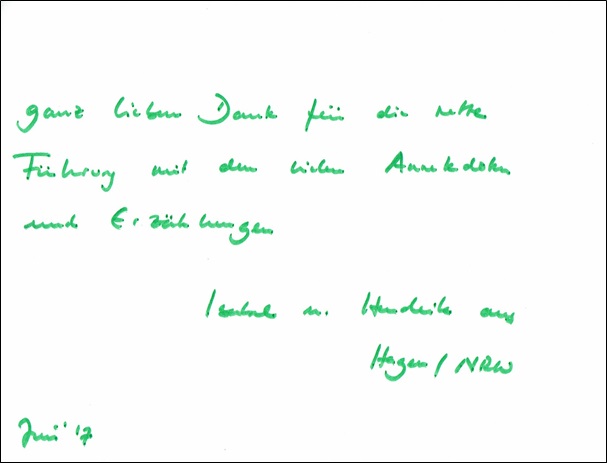 ganz lieben Dank für die nette
Führung mit den vielen Anekdoten
und Erzählungen
Isabel u. Hendrik aus
Hagen / NRW
Juni '17